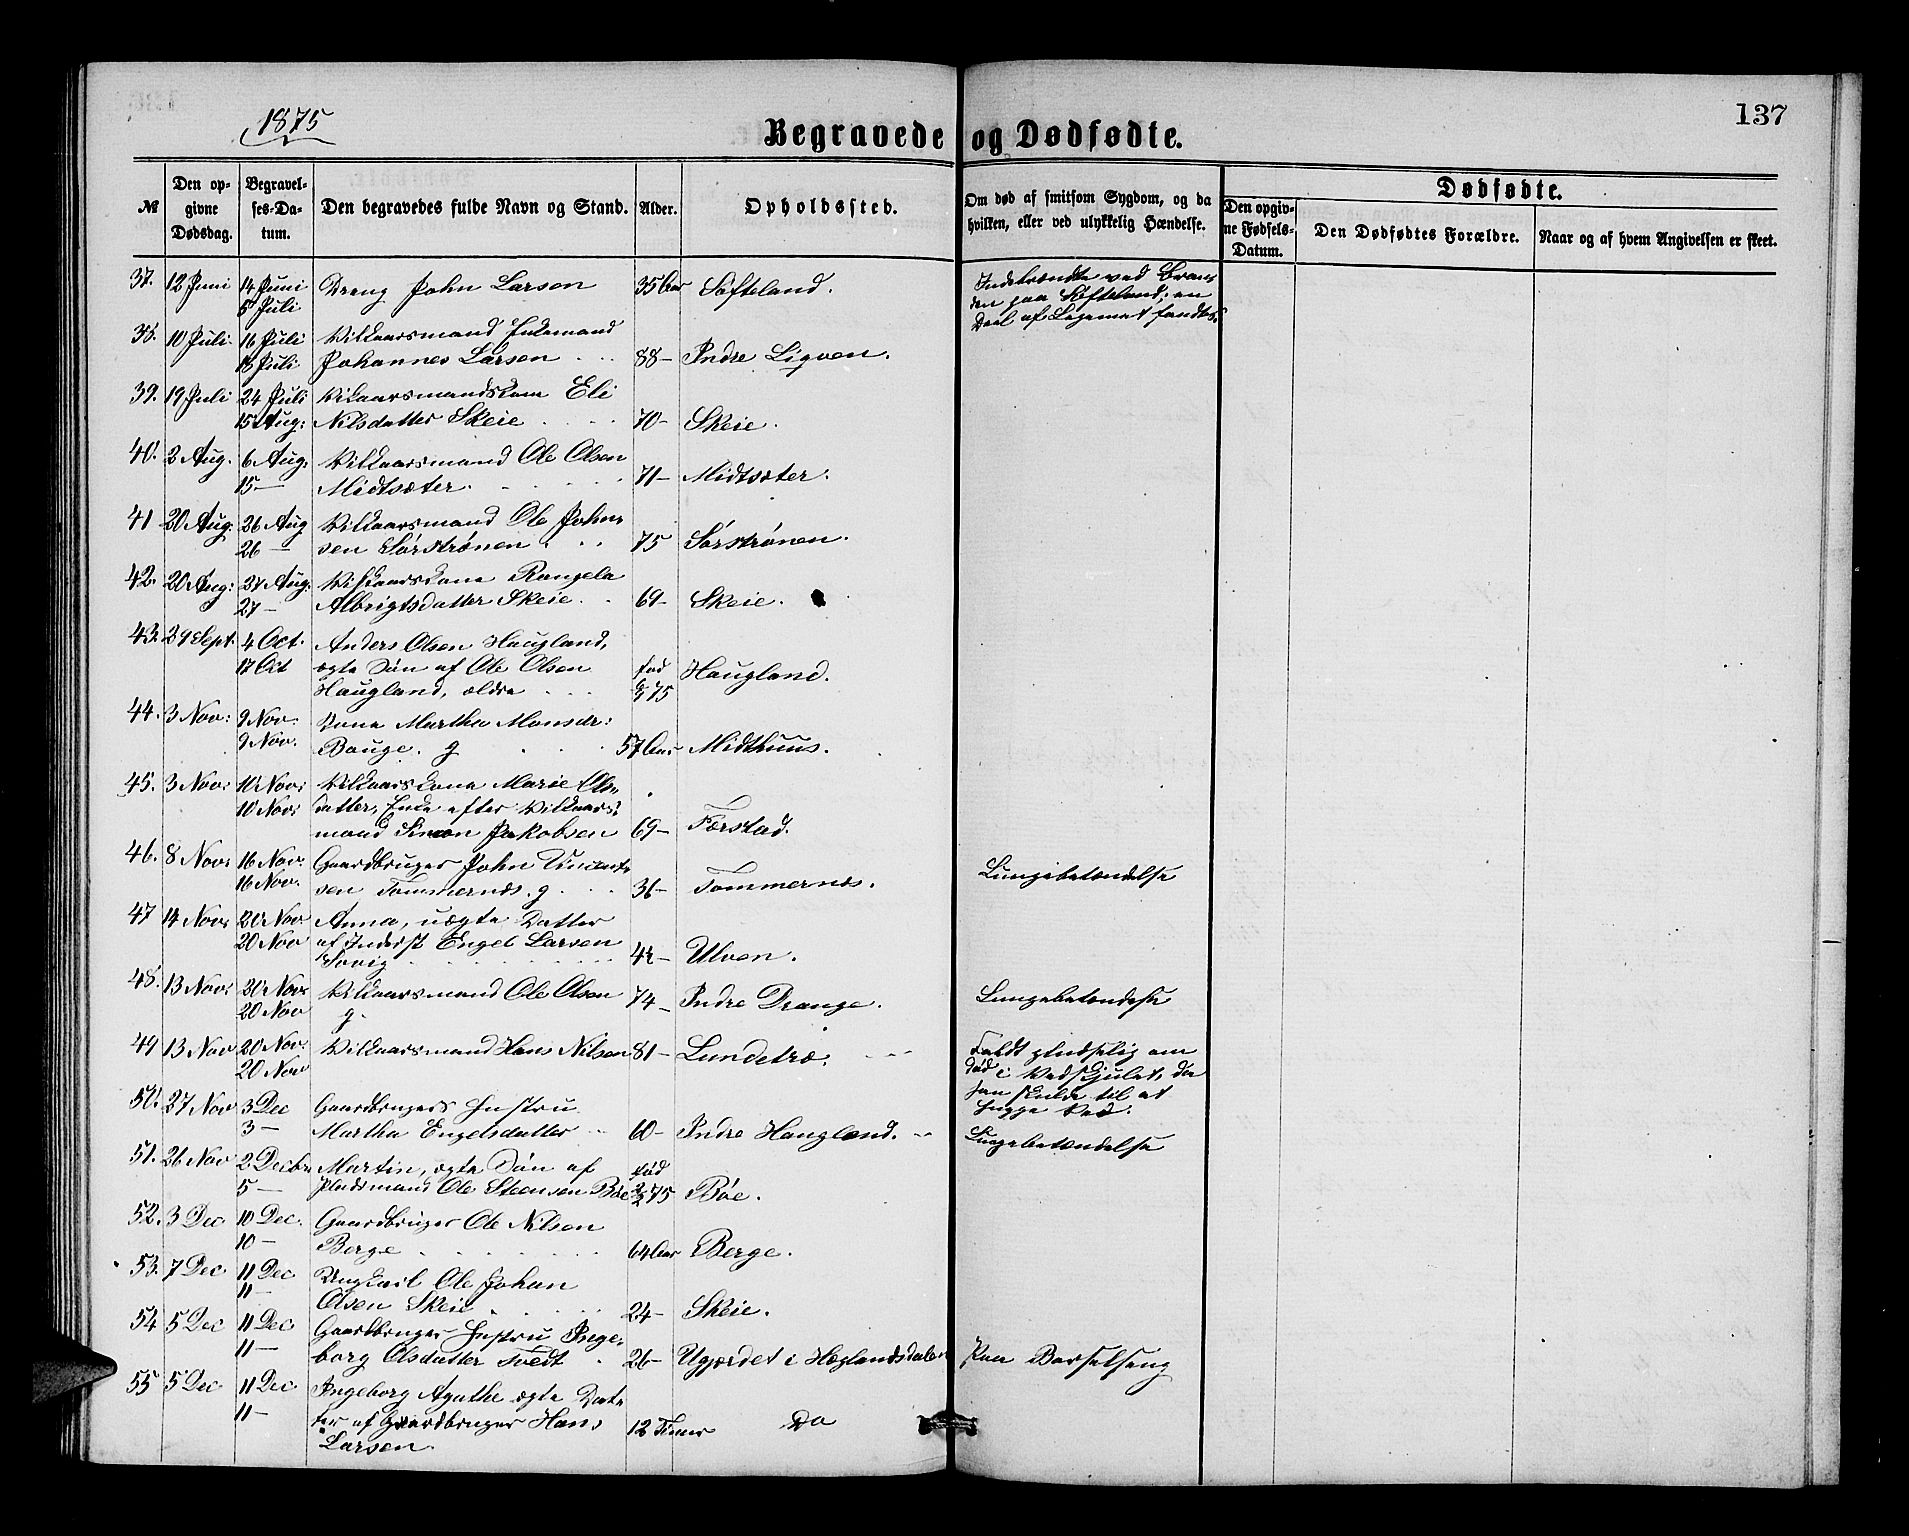 1875
137
Begravede og Dødfødte.
№
Den opgivne Dødsdag.
Begravelses-Datum.
Den begravedes fulde Navn og Stand.
Alder.
Opholdssted.
Om død af smitsom Sygdom, og da hvilken, eller ved ulykkelig Hændelse.
Dødfødte.
Den opgivne Fødsels-Datum.
Den Dødfødtes Forældre.
Naar og af hvem Angivelsen er skeet.
37. 12 Juni 14 Juni Dreng John Larsen 35 Aar Søfteland. Indebrændte ved Bran-
5 Juli den paa Søfteland; en
Deel af Legemet fandtes.
38. 10 Juli 16 Juli Vilkaarsmand Enkemand
18 Juli Johannes Larsen 88 – Indre Ligven.
39. 19 Juli 24 Juli Vilkaarsmandskone Eli
15 Aug: Nilsdatter Skeie 70 – Skeie.
40. 2 Aug. 6 Aug: Vilkaarsmand Ole Olsen
15 – Midtsæter. 71 – Midtsæter.
41 20 Aug: 26 Aug Vilkaarsmand Ole Johne-
26 – sen Sørstrønen 75 Sørstrønen.
42. 20 Aug: 27 Aug: Vilkaarskone Rangela
27 – Albrigtsdatter Skeie. 69 – Skeie.
43. 29 Sept. 4 Oct. Anders Olsen Haugland,
17 Oct ægte Søn af Ole Olsen fød Haugland.
Haugland, ældre 75
44. 3 Nov: 9 Nov. Kone Martha Monsdr:
9 Nov. Bauge. g 57 Aar Midthuus.
45. 3 Nov: 10 Nov: Vilkaarskone Marie Ols-
10 Nov: datter, Enke efter Vilkaars-
mand Simon Jakobsen 69 – Førstad.
46. 8 Nov: 16 Nov. Gaardbruger John Vincent-
16 Nov. sen Tømmernes. g 36 – Tømmernes. Lungebetændelse
47 14 Nov: 20 Nov Anna, uægte Datter
20 Nov af Inderst Engel Larsen
Søvig Ulven.
48. 13 Nov: 20 Nov: Vilkaarsmand Ole Olsen 74 – Indre Drange. Lungebetændelse
20 Nov g.
49 13 Nov 20 Nov. Vilkaarsmand Hans Nilsen 81 – Lundetræ. Faldt pludselig om
20 Nov død i Vedskjulet, da
han skulde til at
hugge Ved.
50. 27 Nov 3 Dec Gaardbrugers Hustru
3 – Martha Engelsdatter 60 – Indre Haugland. Lungebetændelse
51. 26 Nov 2 Decbr Martin, ægte Søn af fød
5 – Pladsmand Ole Steensen Bøe 75 Bøe.
52. 3 Dec 10 Dec. Gaardbruger Ole Nilsen
10 – Berge 64 Aar Berge.
53. 7 Dec 11 Dec Ungkarl Ole Johan
11 – Olsen Skeie 24 – Skeie.
54 5 Dec 11 Dec Gaardbruger Hustru Inge-
11 – borg Olsdatter Tvedt 26 – Ugjærdet i Hæglandsdalen Paa Barselseng
55 5 Dec 11 Dec Ingeborg Agathe ægte Dat-
11 – ter af Gaardbruger Hans 12 Timer Do
Larsen.